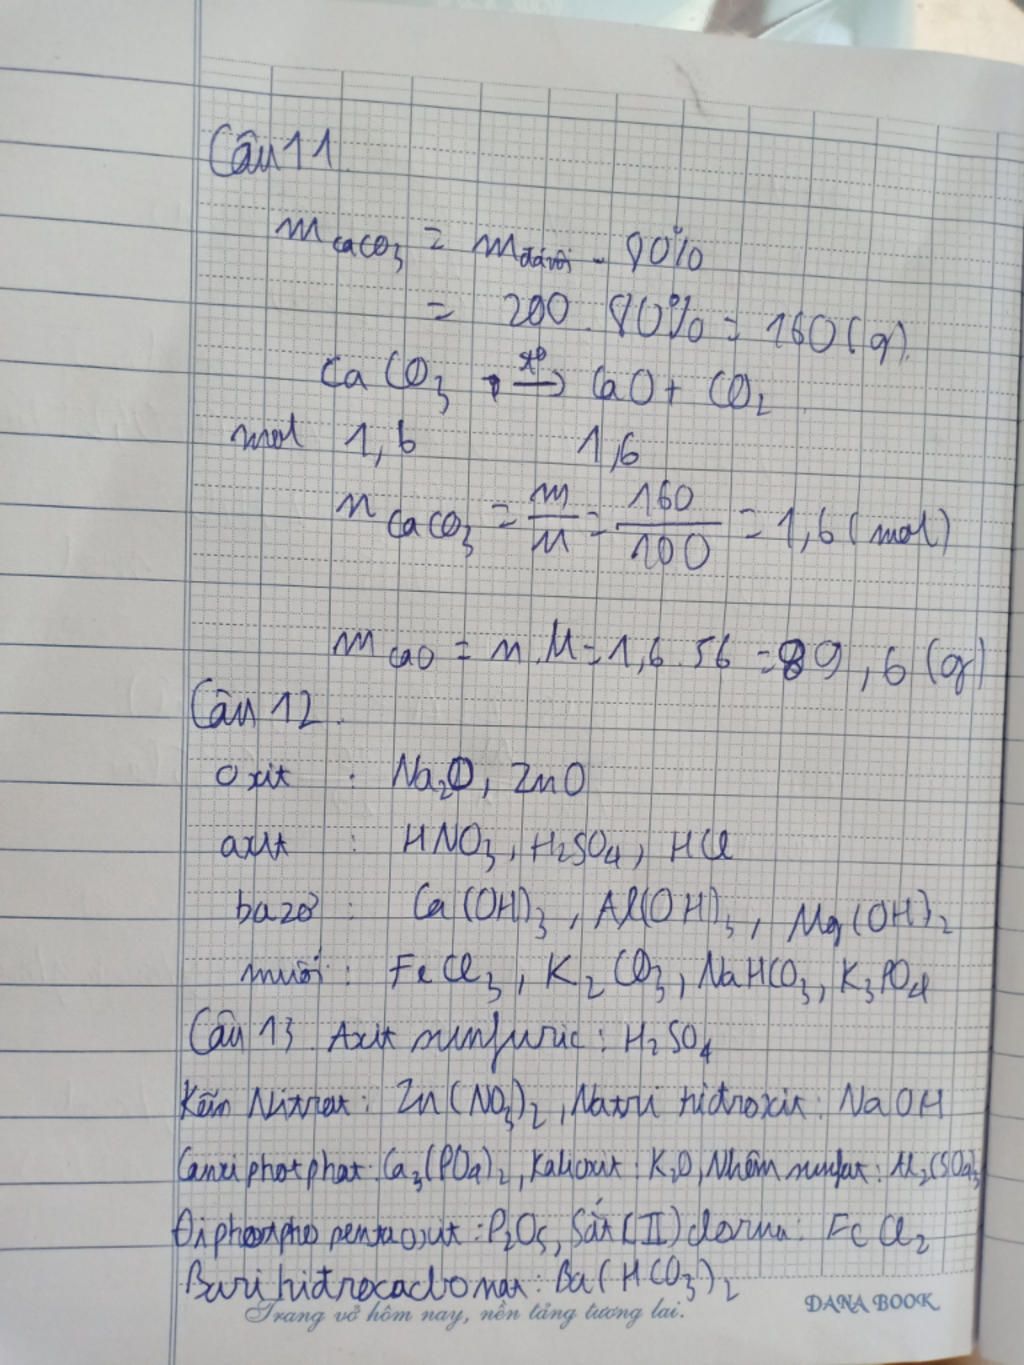 Câu 11.
m CaCO3 = m đá vôi . 80%
= 200 . 80% = 160 (g).
CaCO3 t° → CaO + CO2
mol 1,6 1,6
n CaCO3 = m/M = 160/100 = 1,6 (mol)
m CaO = n.M = 1,6 . 56 = 89,6 (g)
Câu 12.
oxit : Na2O, ZnO
axit : HNO3, H2SO4, HCl
bazơ : Ca(OH)3, Al(OH)3, Mg(OH)2
muối : FeCl3, K2CO3, NaHCO3, K3PO4
Câu 13. Axit sunfuric : H2SO4
Kẽm Nitrat : Zn(NO3)2, Natri hiđroxit : NaOH
Canxi photphat : Ca3(PO4)2, Kali oxit : K2O, Nhôm sunfat : Al2(SO4)3
Điphotpho pentaoxit : P2O5, Sắt (II) clorua : FeCl2
Bari hiđrocacbonat : Ba(HCO3)2
Trang vở hôm nay, nền tảng tương lai. DANA BOOK